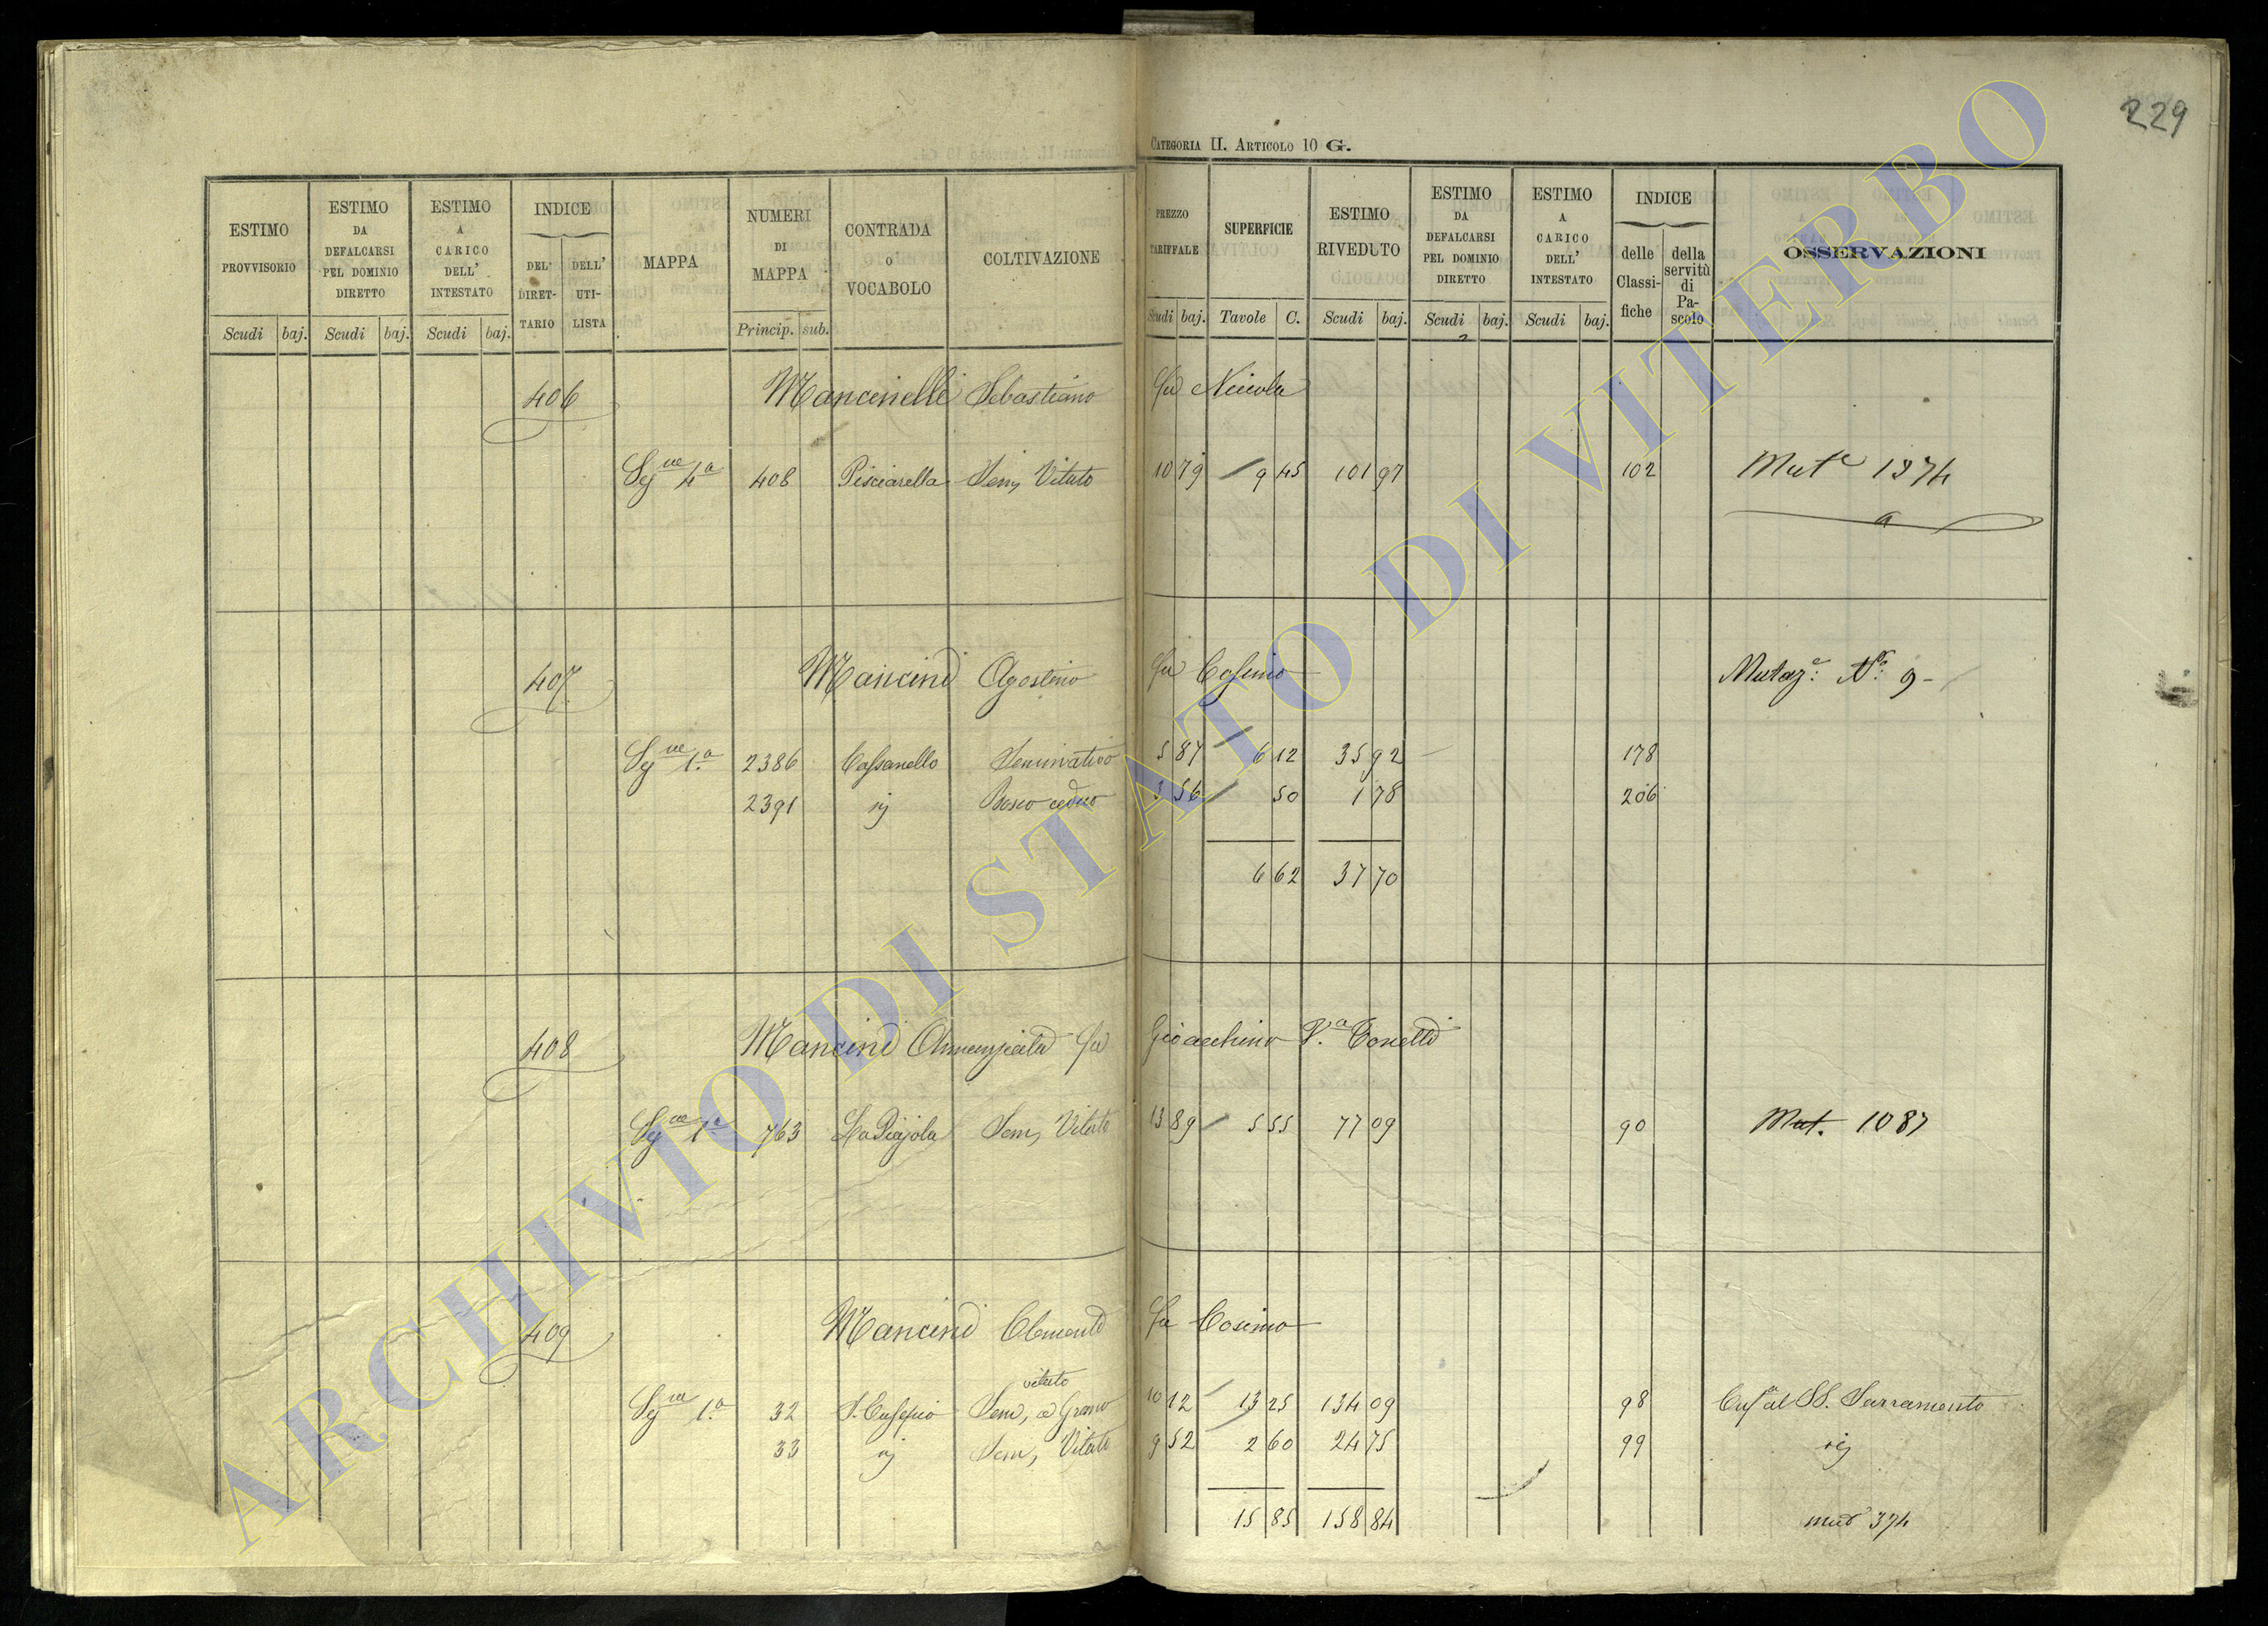 229
CATEGORIA II. ARTICOLO 10 G.
ESTIMO PROVVISORIO Scudi baj.
ESTIMO DA DEFALCARSI PEL DOMINIO DIRETTO Scudi baj.
ESTIMO A CARICO DELL' INTESTATO Scudi baj.
INDICE DEL DIRETTARIO DELL' UTILISTA
MAPPA
NUMERI DI MAPPA Princip. sub.
CONTRADA O VOCABOLO
COLTIVAZIONE
PREZZO TARIFFALE Scudi baj.
SUPERFICIE Tavole C.
ESTIMO RIVEDUTO Scudi baj.
ESTIMO DA DEFALCARSI PEL DOMINIO DIRETTO Scudi baj.
ESTIMO A CARICO DELL' INTESTATO Scudi baj.
INDICE delle Classifiche della servitù di Pascolo
OSSERVAZIONI
406 Mancinelli Sebastiano fu Niccola
Sez.ne 4a 408 Pisciarella Sem, Vitato 10 79 9 45 101 97 102 Mut.e 1274
407 Mancini Agostino fu Cosimo Mutaz.e N.o 9
Sez.ne 1.a 2386 Cassanello Seminativo 5 87 6 12 35 92 178
2391 sij Bosco ceduo 3 56 50 1 78 206
6 62 37 70
408 Mancini Annunziata fu Gioacchino V.a Tonetti
Sez.ne 1a 763 La Piajola Sem, Vitato 13 89 5 55 77 09 90 Mut. 1087
409 Mancini Clemente fu Cosimo
vitato
Sez.ne 1.a 32 S. Eusepio Sem, a Grano 10 12 13 25 134 09 98 al SS. Sacramento
33 sij Sem, Vitato 9 52 2 60 24 75 99 sij
15 85 158 84 mut 374
ARCHIVIO DI STATO DI VITERBO